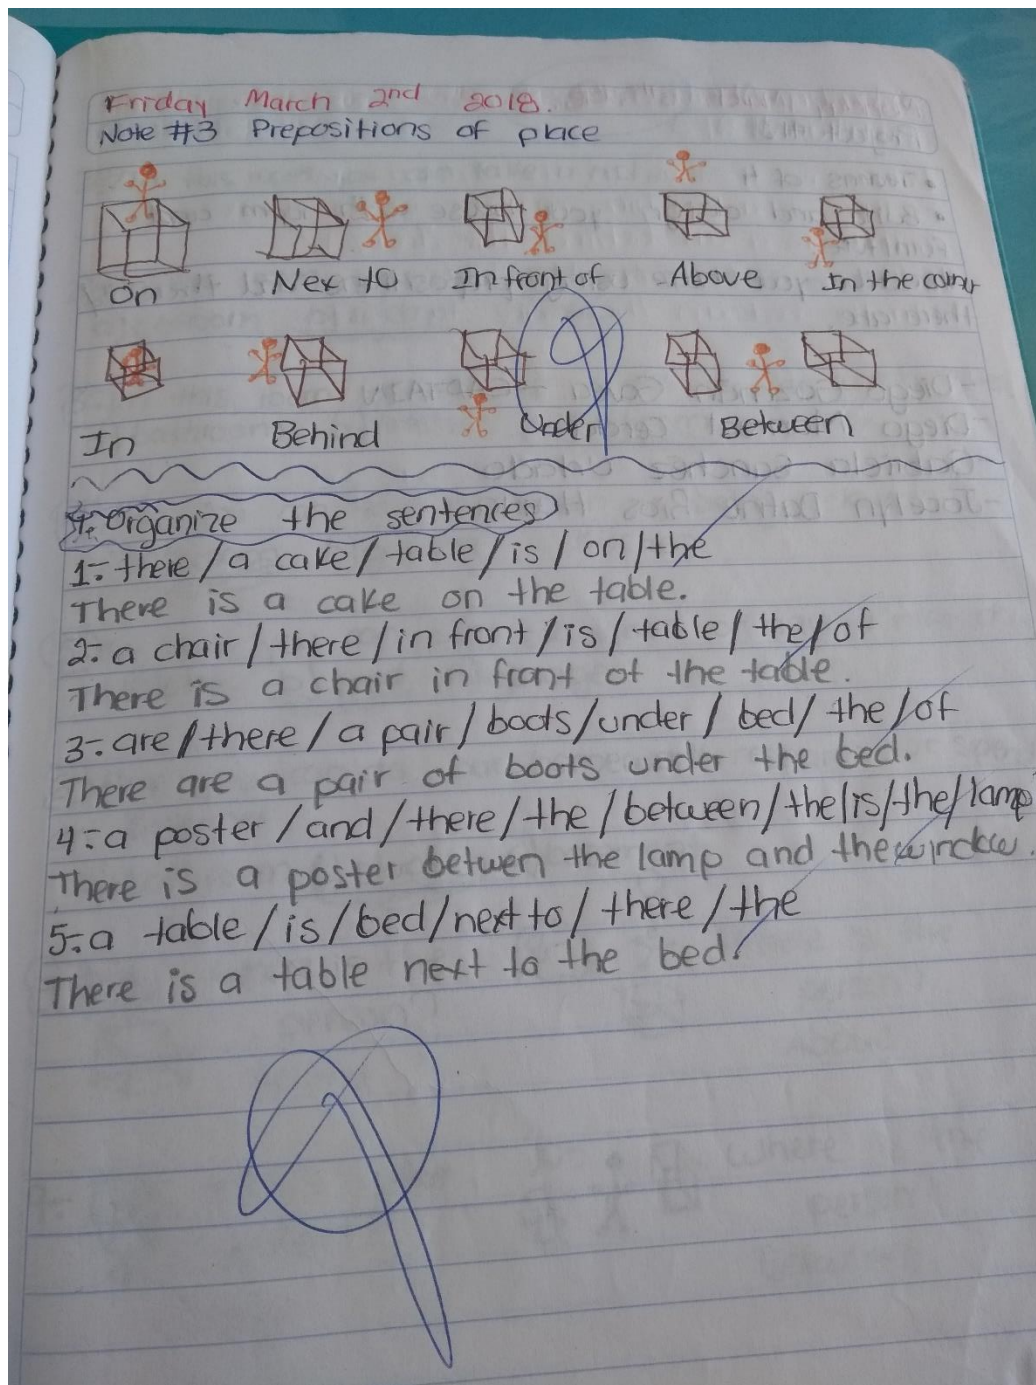 Friday March 2nd 2018.
Note #3 Prepositions of place
On Nex to In front of Above In the corner
In Behind Under Between
1:- Organize the sentences
1:- there / a cake / table / is / on / the
There is a cake on the table.
2:- a chair / there / in front / is / table / the / of
There is a chair in front of the table.
3:- are / there / a pair / boots / under / bed / the / of
There are a pair of boots under the bed.
4:- a poster / and / there / the / between / the / is / the / lamp
There is a poster betwen the lamp and the window.
5:- a table / is / bed / next to / there / the
There is a table next to the bed.